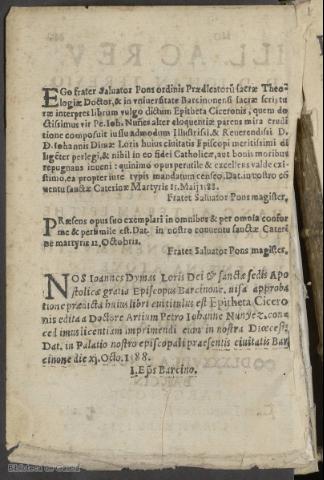 EGo frater Saluator Pons ordinis Prædicatorũ sacræ Theo-
logiæ Doctor, & in vniuersitate Barcinonensi sacræ scriptu
ræ interpres librum vulgo dictum Epitheta Ciceronis, quem do
ctissimus vir Pe. Ioh. Nuñes alter eloquentiæ parens mira erudi
tione composuit iussu admodum Illustrisi. & Reuerendisi D.
D. Iohannis Dimas Loris huius ciuitatis Episcopi meritissimi di
ligẽter perlegi, & nihil in eo fidei Catholicæ, aut bonis moribus
repugnans inueni: quinimo operæ vtile & excellens valde exi-
stimo, ea propter iure typis mandatum censeo. Dat. in nostro cõ
uentu sanctæ Caterinæ Martyris 15. Maij 188.
Frater Saluator Pons magister,
PRæsens opus suo exemplari in omnibus & per omnia confor
me & persimile est. Dat. in nostro conuentu sanctæ Cateri
næ martyris 12, Octobris.
Frater Saluator Pons magister,
NOS Ioannes Dymas Loris Dei & sanctæ sedis Apo
stolicæ gratia Episcopus Barcinone. visa approba
tione prædicta huius libri cui titulus est Epitheta Cicero
nis edita a Doctore Artium Petro Iohanne Nunyez. con-
ced imus licentiam imprimendi eum in nostra Diœcesi.
Dat. in Palatio nostro episcopali præsentis ciuitatis Bar
cinone die xj. Octo. 1588.
I. Ep̃s Barcino.